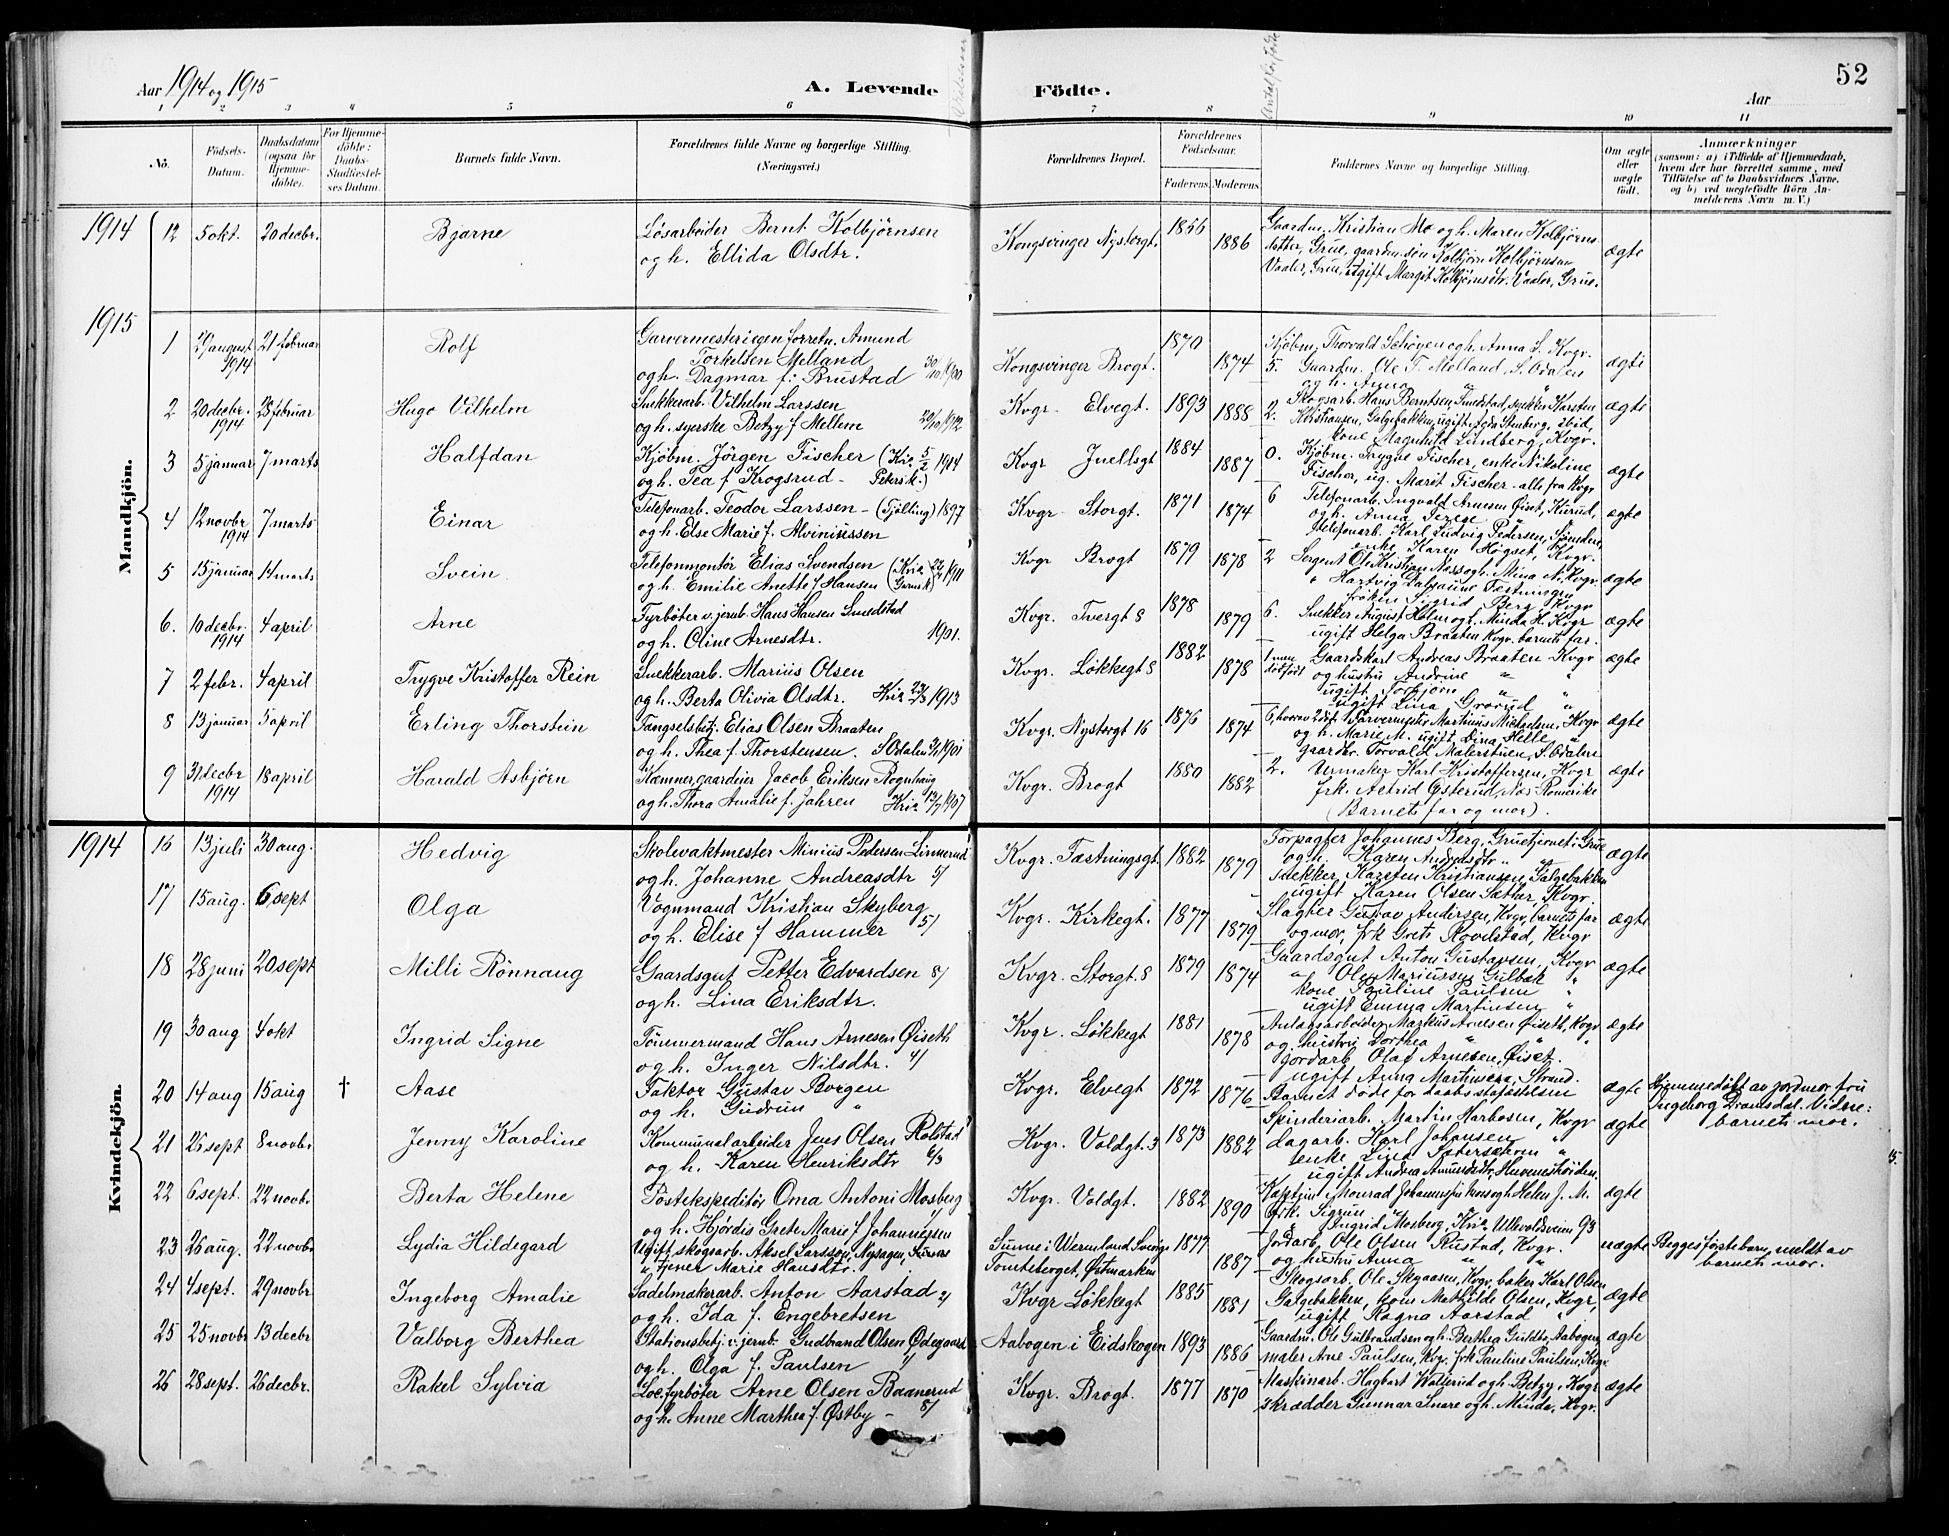 Aar 1914 og 1915
A. Levende Födte.
Aar
52
1 2 3 4 5 6 7 8 9 10 11
No.
Födsels-Datum.
Daabsdatum (ogsaa for Hjemme-döbte).
For Hjemme-döbte: Daabs-Stadfæstel-ses Datum.
Barnets fulde Navn.
Forældrenes fulde Navne og borgerlige Stilling. (Næringsvei.)
Forældrenes Bopæl.
Forældrenes Födselsaar.
Faderens. Moderens.
Faddernes Navne og borgerlige Stilling.
Om ægte eller uægte födt.
Anmærkninger
(saasom: a) i Tilfælde af Hjemmedaab, hvem der har forrettet samme, med Tilföielse af to Daabsvidners Navne. og b) ved uægtefödte Börn Anmelderens Navn m. V.)
Mandkjön.
1914 12 5 okt. 20 decbr. Bjarne
Løsarbeider Bernt Kolbjörnsen
og h. Ellida Olsdtr.
Kongsvinger Nystorgt. 1856 1886
Gaardm. Kristian Mo og h. Maren Kolbjörns
datter, Grue, gaardm. sön Kolbjörn Kolbjörnsen
Vaaler, Grue, ugift Margit Kolbjörnsdtr. Vaaler, Grue.
ægte
1915 1 29 august 1914 21 februar Rolf
Garvermester i egen forretn. Amund
Torkelsen Melland
og h. Dagmar f. Brustad 30/10 1900
Kongsvinger Brogt. 1870 1874
Kjöbm. Thorvald Schöyen og h. Anna S. Kvgr.
5. Gaardm. Ole T. Melland, S. Odalen
og h. Anna
ægte
2 20 decbr. 1914 28 februar Hugo Vilhelm
Snekkerarb. Vilhelm Larssen
og h. syerske Betzy f. Mellem 1912
Kvgr. Elvegt. 1893 1888
2. Skogsarb. Hans Berntsen, Smedstad, snekker Karsten
Kristiansen, Galgebakken, ugift Agda Stenberg, ibid,
kone Magnhild Lindberg, Kvgr.
ægte
3 5 januar 7 marts Halfdan
Kjöbm. Jörgen Fischer (Kria 5/2 1914
og h. Tea f Krogsrud - Petersk.)
Kvgr Juellsgt 1884 1887
0. Kjöbm. Trygve Fischer, enke Nikoline
Fischer, ug. Marit Fischer - alle fra Kvgr
ægte
4 12 novbr 1914 7 marts Einar
Telefonarb. Teodor Larssen - (Tjölling) 1897
og h. Else Marie f. Alviniussen
Kvgr Storgt. 1871 1874
6 Telefonarb. Ingvald Arnesen Øiset, Kurud,
og h. Anna Terese
Telefonarb. Karl Ludvig Pedersen,
enke Karen Høgset, Kvgr.
ægte
5 15 januar 14 marts Svein
Telefonmontör Elias Svendsen (Kria 1911
og h. Emilie Anette f Hansen
Kvgr Brogt 1879 1878
2 Sergent Ole Kristian Næss og h. Mina N. Kvgr.
" Hartvig Dalsaune Festningen
fröken Sigrid Berg Kvgr
ægte
6. 10 decbr. 1914 4 april Arne
Fyrböter v. jernb. Hans Hansen Smedstad
og h. Oline Arnesdtr. 1901.
Kvgr. Tvergt 8 1878 1879
6. Snekker August Holm og h. Minda H. Kvgr
ugift Helga Braaten Kvgr. barnets far.
ægte
7 2 febr. 4 april Trygve Kristoffer Rein
Snekkerarb. Marius Olsen
og h. Berta Olivia Olsdtr. Kria 23/3 1913
Kvgr. Løkkegt 8 1882 1878
1 men dödfödt Gaardskarl Andreas Braaten Kvgr
og hustru Andrine " "
ugift Torbjörn " "
ugift Lina Grorud "
ægte
8 13 januar 5 april Erling Thorstein
Fængselsbetj. Elias Olsen Braaten
og h. Thea f. Thorstensen. S Odalen 1901
Kvgr. Nystorgt 16 1876 1874
6, hvorav 2 död. Farvermester Martinus Mickaelsen, Kvgr
og h. Marie M. ugift Dina Helle "
gaardbr. Torvald Malerstuen, S. Odalen
ægte
9 31 decbr 1914 18 april Harald Asbjørn
Kæmnergaardeier Jacob Eriksen Rognhaug
og h. Thora Amalie f. Jahren Kria 1907
Kvgr. Brogt 1880 1882
2. Urmaker Karl Kristoffersen, Kvgr
frk. Astrid Østerud, Næs Romerike
(Barnets far og mor).
ægte
Kvindekjön.
1914 16 13 juli 30 aug. Hedvig
Skolevaktmester Minius Pedersen Linnerud
og h. Johanne Andreasdtr 5/
Kvgr. Fæstningsgt. 1882 1879
Forpagter Johannes Berg, Gruetjernet i Grue
og h. Karen Andreasdtr " "
Snekker Karsten Kristiansen, Galgebakken
ugift Karen Olsen Sæther, Kvgr.
ægte
17 15 aug. 6 sept Olga
Vognmand Kristian Skyberg
og h. Elise f Hammer 5/
Kvgr. Kirkegt. 1877 1879
Slagter Gustav Andersen, Kvgr, barnets far
og mor, frk Grete Rovelstad, Kvgr
ægte
18 28 juni 20 sept Milli Rönnaug
Gaardsgut Petter Edvardsen 8/
og h. Lina Eriksdtr.
Kvgr. Storgt. 8 1879 1874
Gaardsgut Anton Gustavsen, Kvgr
" Ole Mariussen Gulbæk "
kone Pauline Paulsen "
ugift Emma Martinsen "
ægte
19 30 aug 4 okt Ingrid Signe
Tömmermand Hans Arnesen Øiseth
og h. Inger Nilsdtr. 4/
Kvgr. Løkkegt 1881 1878
Anlægsarbeider Markus Arnesen Øiseth, Kvgr
og hustru Dorthea " "
jordarb. Olaf Arnesen, Øiset.
ugift Anna Martinsen, Strand.
ægte
20 14 aug 15 aug † Aase
Faktor Gustav Borgen
og h. Gudrun "
Kvgr. Elvegt 1872 1876
Barnet döde för daabsstadfæstelsen
ægte
Hjemmedöbt av jordmor fru
Ingeborg Dramsdal. Vidne:
barnets mor.
21 26 sept 8 novbr Jenny Karoline
Kommunalarbeider Jens Olsen Rolstad
og h. Karen Henriksdtr 6/3
Kvgr. Voldgt. 3 1873 1882
Spinderiarb. Martin Marbosen, Kvgr
dagarb. Karl Johansen "
enke Lina "
ugift Andrea Amundsdtr,
ægte
22 6 sept. 22 novbr Berta Helene
Postekspeditör Oma Antoni Mosberg
og h. Hjördis Grete Marie f Johannesen
Kvgr. Voldgt. 1882 1890
Kaptein Monrad Johannesen og h Helen J. M.
frk. Sigrun
Ingrid Mosberg, Kria, Ullevoldsveien 93
ægte
23 26 aug. 22 novbr Lydia Hildegard
Ugift skogsarb. Aksel Larsson, Nysagen,
" tjener Marie Hansdtr.
Sunne i Wermland Sverige
Tomteberget, Østmarken 1877 1887
Jordarb. Ole Olsen Rustad, Kvgr.
og hustru Anna " "
uægte
Begges förste barn, meldt av
barnets mor.
24 4 sept. 29 novbr Ingeborg Amalie
Sadelmakerarb. Anton Aarstad 2/
og h. Ida f. Engebretsen
Kvgr Løkkegt 1885 1881
Skogsarb. Ole Skyaasen, Kvgr, baker Karl Olsen
Galgebakken, kone Mathilde Olsen, Kvgr,
ugift Ragna Aarstad "
ægte
25 25 novbr 13 decbr Valborg Berthea
Stationsbetj. v. jernb. Gudbrand Olsen Ødegaard
og h. Olga f. Paulsen
Aabogen i Eidskogen 1893 1886
Gaardm. Ole Gulbrandsen og h. Berthea Guldtr, Aabogen
maler Arne Paulsen, Kvgr. frk Pauline Paulsen, Kvgr.
ægte
26 28 sept. 26 decbr. Rakel Sylvia
Lok.fyrböter Arne Olsen Baanerud
og h. Anne Marthea f. Østby - 8/
Kvgr. Brogt. 1877 1870
Maskinarb. Hagbart Wollerud og h. Betzy, Kvgr
skrædder Gunnar Snare og h. Minda, Kvgr.
ægte